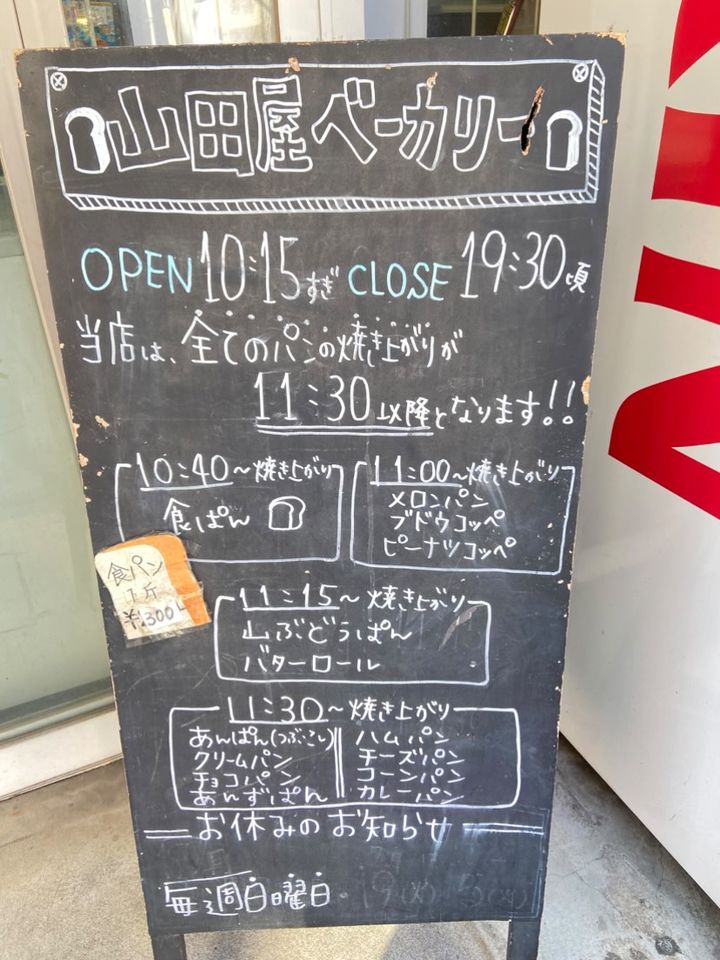 山田屋ベーカリー
OPEN 10:15すぎ CLOSE 19:30頃
当店は、全てのパンの焼き上がりが
11:30以降となります!!
10:40〜焼き上がり
食ぱん
11:00〜焼き上がり
メロンパン
ブドウコッペ
ピーナツコッペ
食パン
1斤
¥300
11:15〜焼き上がり
山ぶどうぱん
バターロール
11:30〜焼き上がり
あんぱん(つぶ・こし)
クリームパン
チョコパン
あんずぱん
ハムパン
チーズパン
コーンパン
カレーパン
お休みのお知らせ
毎週日曜日